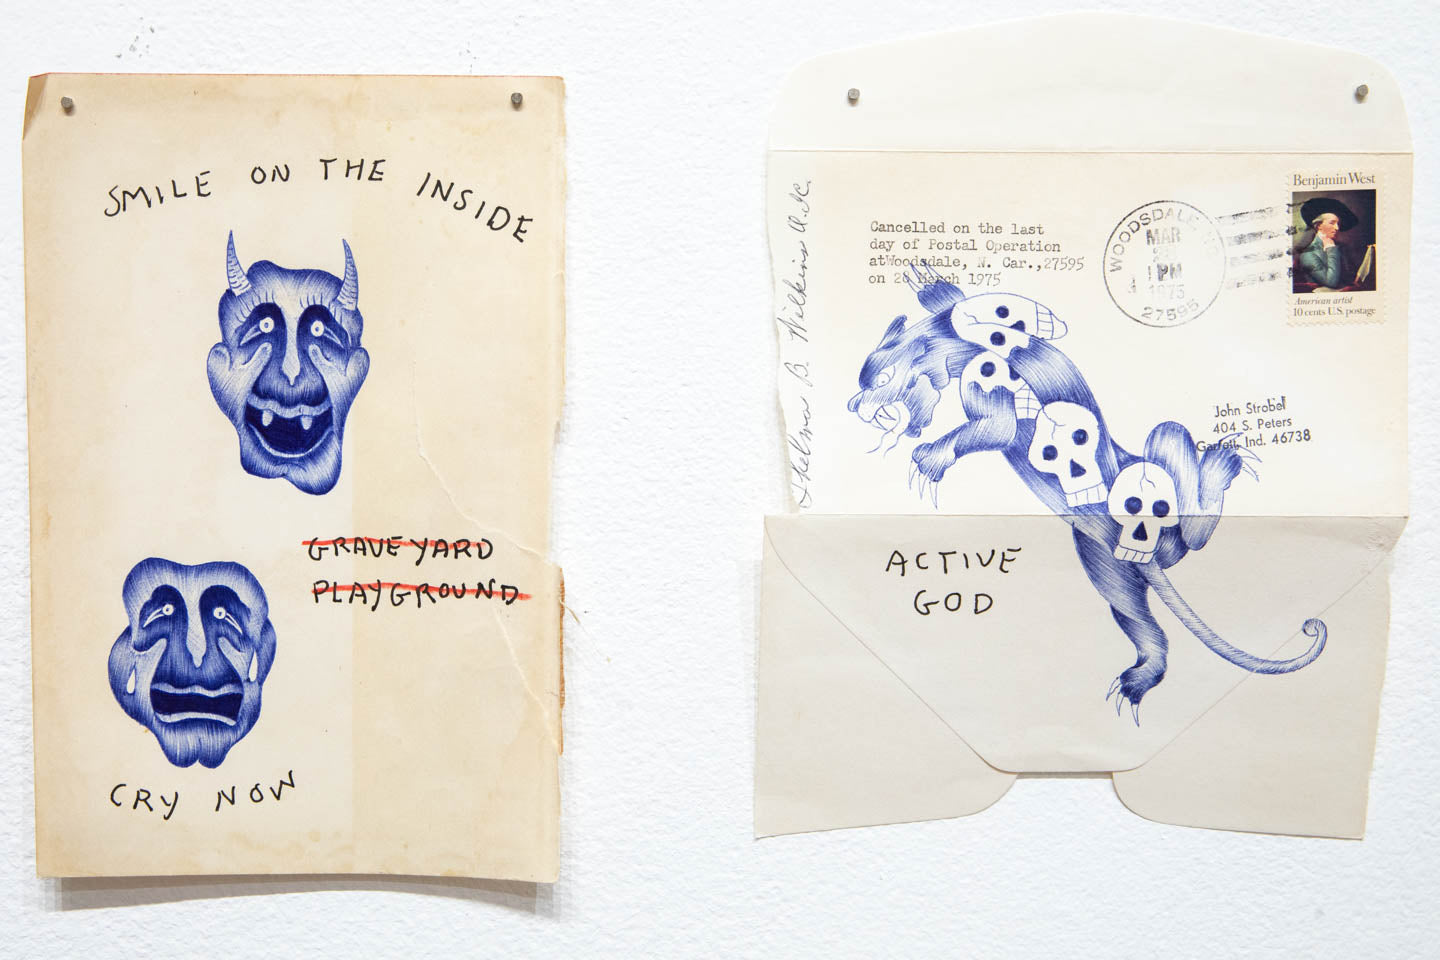 SMILE ON THE INSIDE
GRAVEYARD
PLAYGROUND
CRY NOW
Thelma B. Wilkins
Cancelled on the last
day of Postal Operation
atWoodsdale, N. Car.,27595
on 28 March 1975
WOODSDALE
MAR
PM
1975
27595
Benjamin West
American artist
10 cents U.S. postage
John Strobel
404 S. Peters
Garrett, Ind. 46738
ACTIVE
GOD